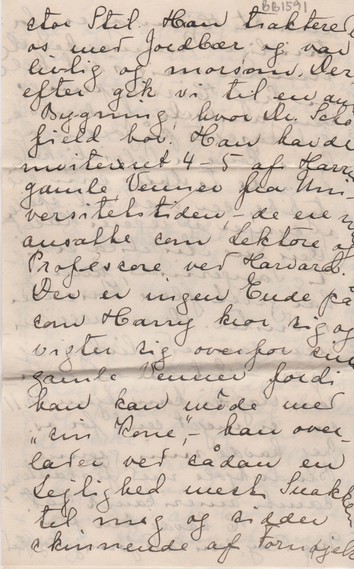 BB1591
stor Stil. Han trakterede
os med Jordbær og var
livlig og morsom. Der
efter gik vi til en an
Bygning, hvor Dr. Scho
field bor. Han havde
inviteret 4-5 af Harry
gamle Venner fra Uni-
versitetstiden, - de ere n
ansatte som Lektore og
Professore ved Harvard.
Der er ingen Ende på
som Harry kror sig og
vigter sig overfor sine
gamle Venner fordi
han kan møde med
„sin Kone", - han over-
lader ved sådan en
Lejlighed mest Snakken
til mig og sidder
skinnende af Fornøjel